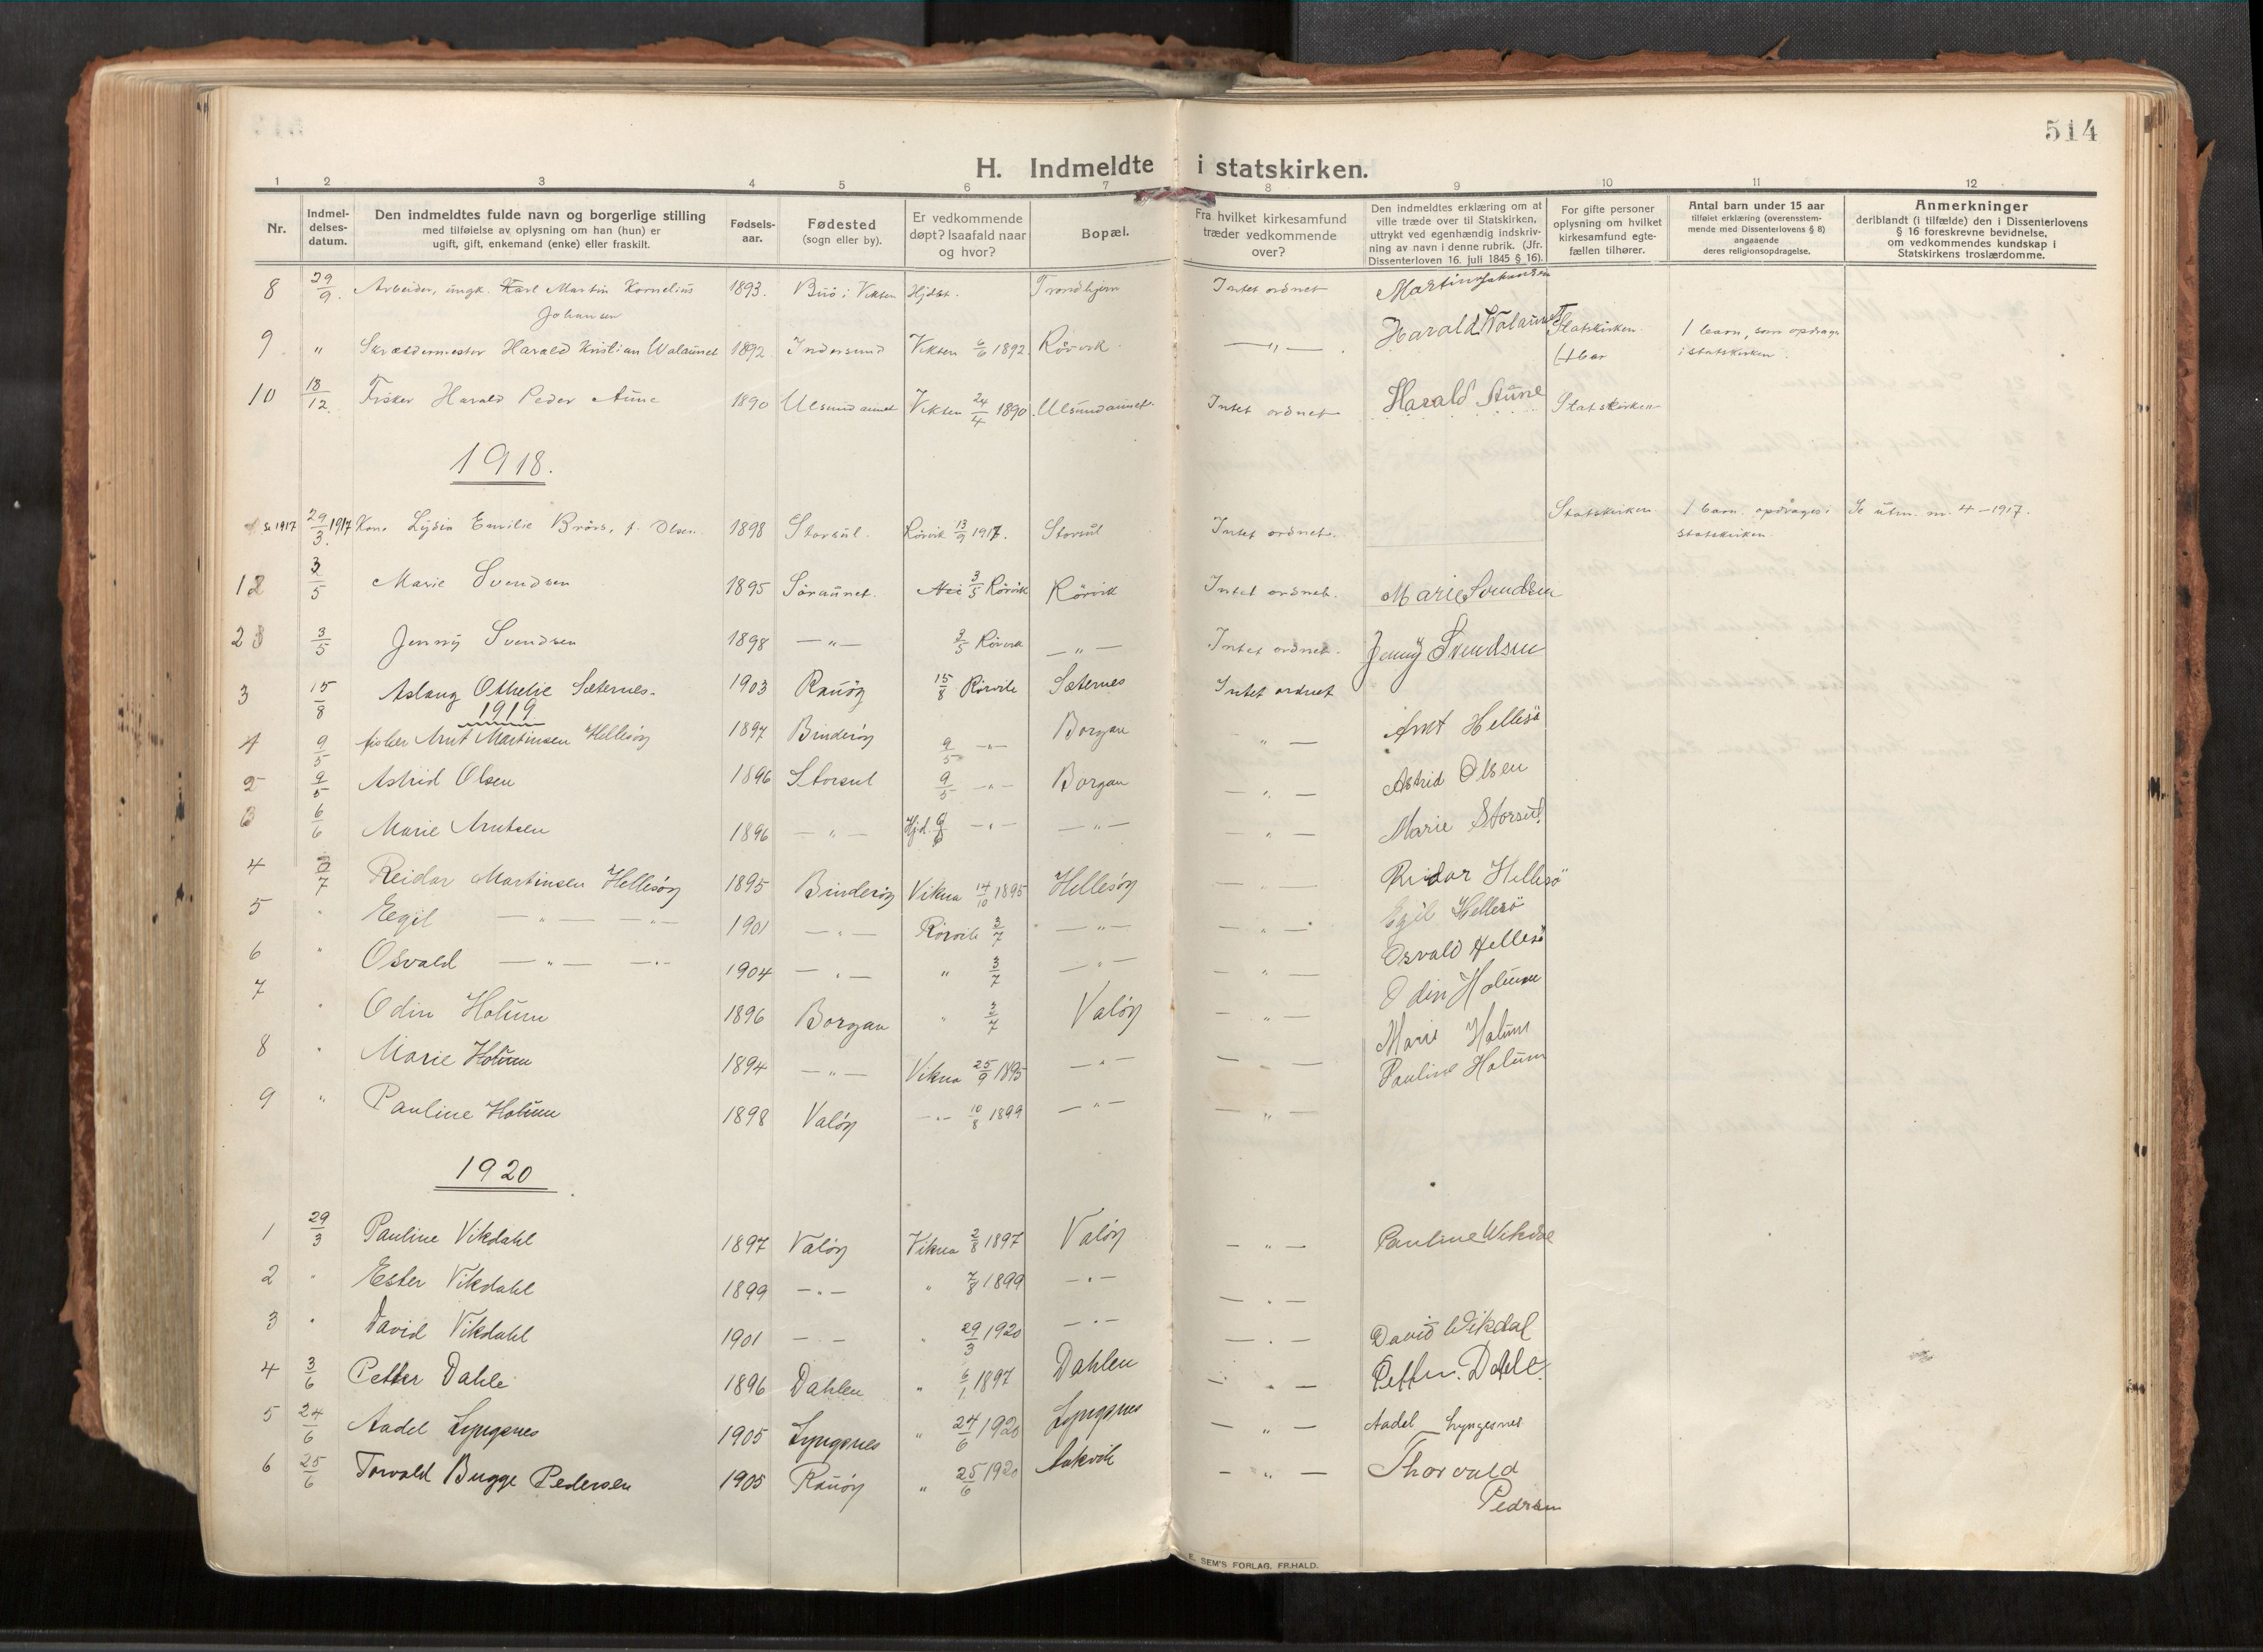 514
H. Indmeldte i statskirken.
1 2 3 4 5 6 7 8 9 10 11 12
Nr.
Indmel-
delses-
datum.
Den indmeldtes fulde navn og borgerlige stilling
med tilføielse av oplysning om han (hun) er
ugift, gift, enkemand (enke) eller fraskilt.
Fødsels-
aar.
Fødested
(sogn eller by).
Er vedkommende
døpt? Isaafald naar
og hvor?
Bopæl.
Fra hvilket kirkesamfund
træder vedkommende
over?
Den indmeldtes erklæring om at
ville træde over til Statskirken,
uttrykt ved egenhændig indskriv-
ning av navn i denne rubrik. (Jfr.
Dissenterloven 16. juli 1845 § 16).
For gifte personer
oplysning om hvilket
kirkesamfund egte-
fællen tilhører.
Antal barn under 15 aar
tilføiet erklæring (overensstem-
mende med Dissenterlovens § 8)
angaaende
deres religionsopdragelse.
Anmerkninger
deriblandt (i tilfælde) den i Dissenterlovens
§ 16 foreskrevne bevidnelse,
om vedkommendes kundskap i
Statskirkens troslærdomme.
8 29/9. Arbeider, ungk. Karl Martin Kornelius 1893. Buö i Vikten Hjdbt. Trondhjem Intet ordnet Martin Johansen
Johansen
9 " Skræddermester Harald Kristian Walaunet 1892 Indersund Vikten 6/6 1892. Rörvik —"— Harald Walaunet Statskirken 1 barn, som opdrages
i statskirken.
10 18/12. Fisker Harald Peder Aune 1890 Ulsundaunet Vikten 24/4 1890. Ulsundaunet. Intet ordnet Harald Aune Statskirken
1918.
Se 1917 29/3. 1917 Kone Lydia Emilie Brörs, f. Olsen. 1898 Storsul. Rörvik 13/9 1917. Storsul Intet ordnet. Statskirken 1 barn opdrages i Se utm. nr. 4 – 1917.
statskirken
1 3/5 Marie Svendsen 1895 Söraunet. Nei 3/5 Rörvik Rörvik Intet ordnet. Marie Svendsen
2 3/5 Jenny Svendsen 1898 —"— 3/5 Rörvik —"— Intet ordnet. Jenny Svendsen
3 15/8 Aslaug Othelie Sæternes. 1903 Rauöy 15/8 Rörvik Sæternes Intet ordnet
1919
1 9/5 fisker Arnt Martinsen Hellesöy 1897 Binderöy 9/5 —"— Borgan —"— Arnt Hellesö
2 9/5 Astrid Olsen 1896 Storsul 9/5 —"— Borgan —"— Astrid Olsen
3 6/6 Marie Arntsen 1896 —"— Hjd. 9/6 —"— —"— —"— Marie Storsul.
4 3/7 Reidar Martinsen Hellesöy 1895 Binderöy Vikna 14/10 1895 Hellesöy —"— Reidar Hellesö
5 " Egil —"— —"— 1901 —"— Rörvik 3/7 —"— —"— Egil Hellesö
6 " Osvald —"— —"— 1904 —"— " 3/7 —"— —"— Osvald Hellesö
7 " Odin Holum 1896 Borgan " 3/7 Valöy —"— Odin Holum
8 " Marie Holum 1894 —"— Vikna 25/9 1895 —"— —"— Marie Holum
9 " Pauline Holum 1898 Valöy —"— 10/8 1899 —"— —"— Pauline Holum
1920
1 29/3 Pauline Vikdahl 1897 Valöy Vikna 2/8 1897 Valöy —"— Pauline Wikdal
2 " Ester Vikdahl 1899 —"— " 7/8 1899 —"— —"—
3 " David Vikdahl 1901 —"— " 29/3 1920 —"— —"— David Wikdal
4 3/6 Petter Dahle 1896 Dahlen " 6/1 1897 Dahlen —"— Petter. Dahle.
5 24/6 Aadel Lyngsnes 1905 Lyngsnes " 24/6 1920 Lyngsnes —"— Aadel Lyngesnes
6 25/6 Torvald Bugge Pedersen 1905 Rauöy " 25/6 1920 —"— Thorvald
Pedrsen
E. SEM'S FORLAG, FR.HALD.